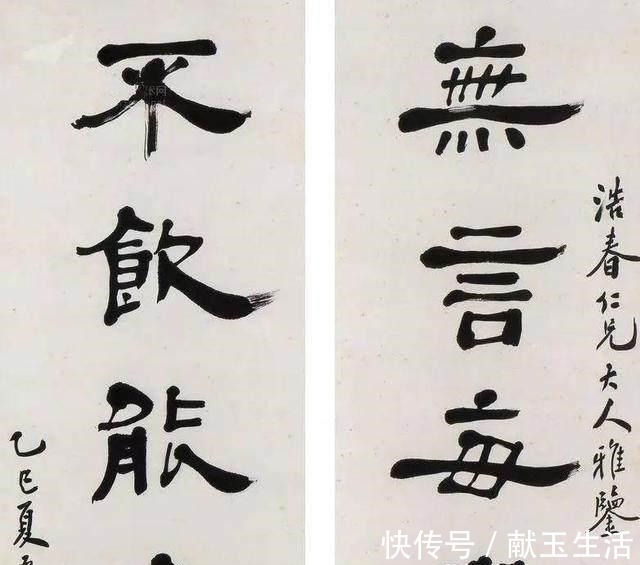 浩春仁兄大人雅鑒
無言每
不飲能
乙巳夏
快传号／献玉生活